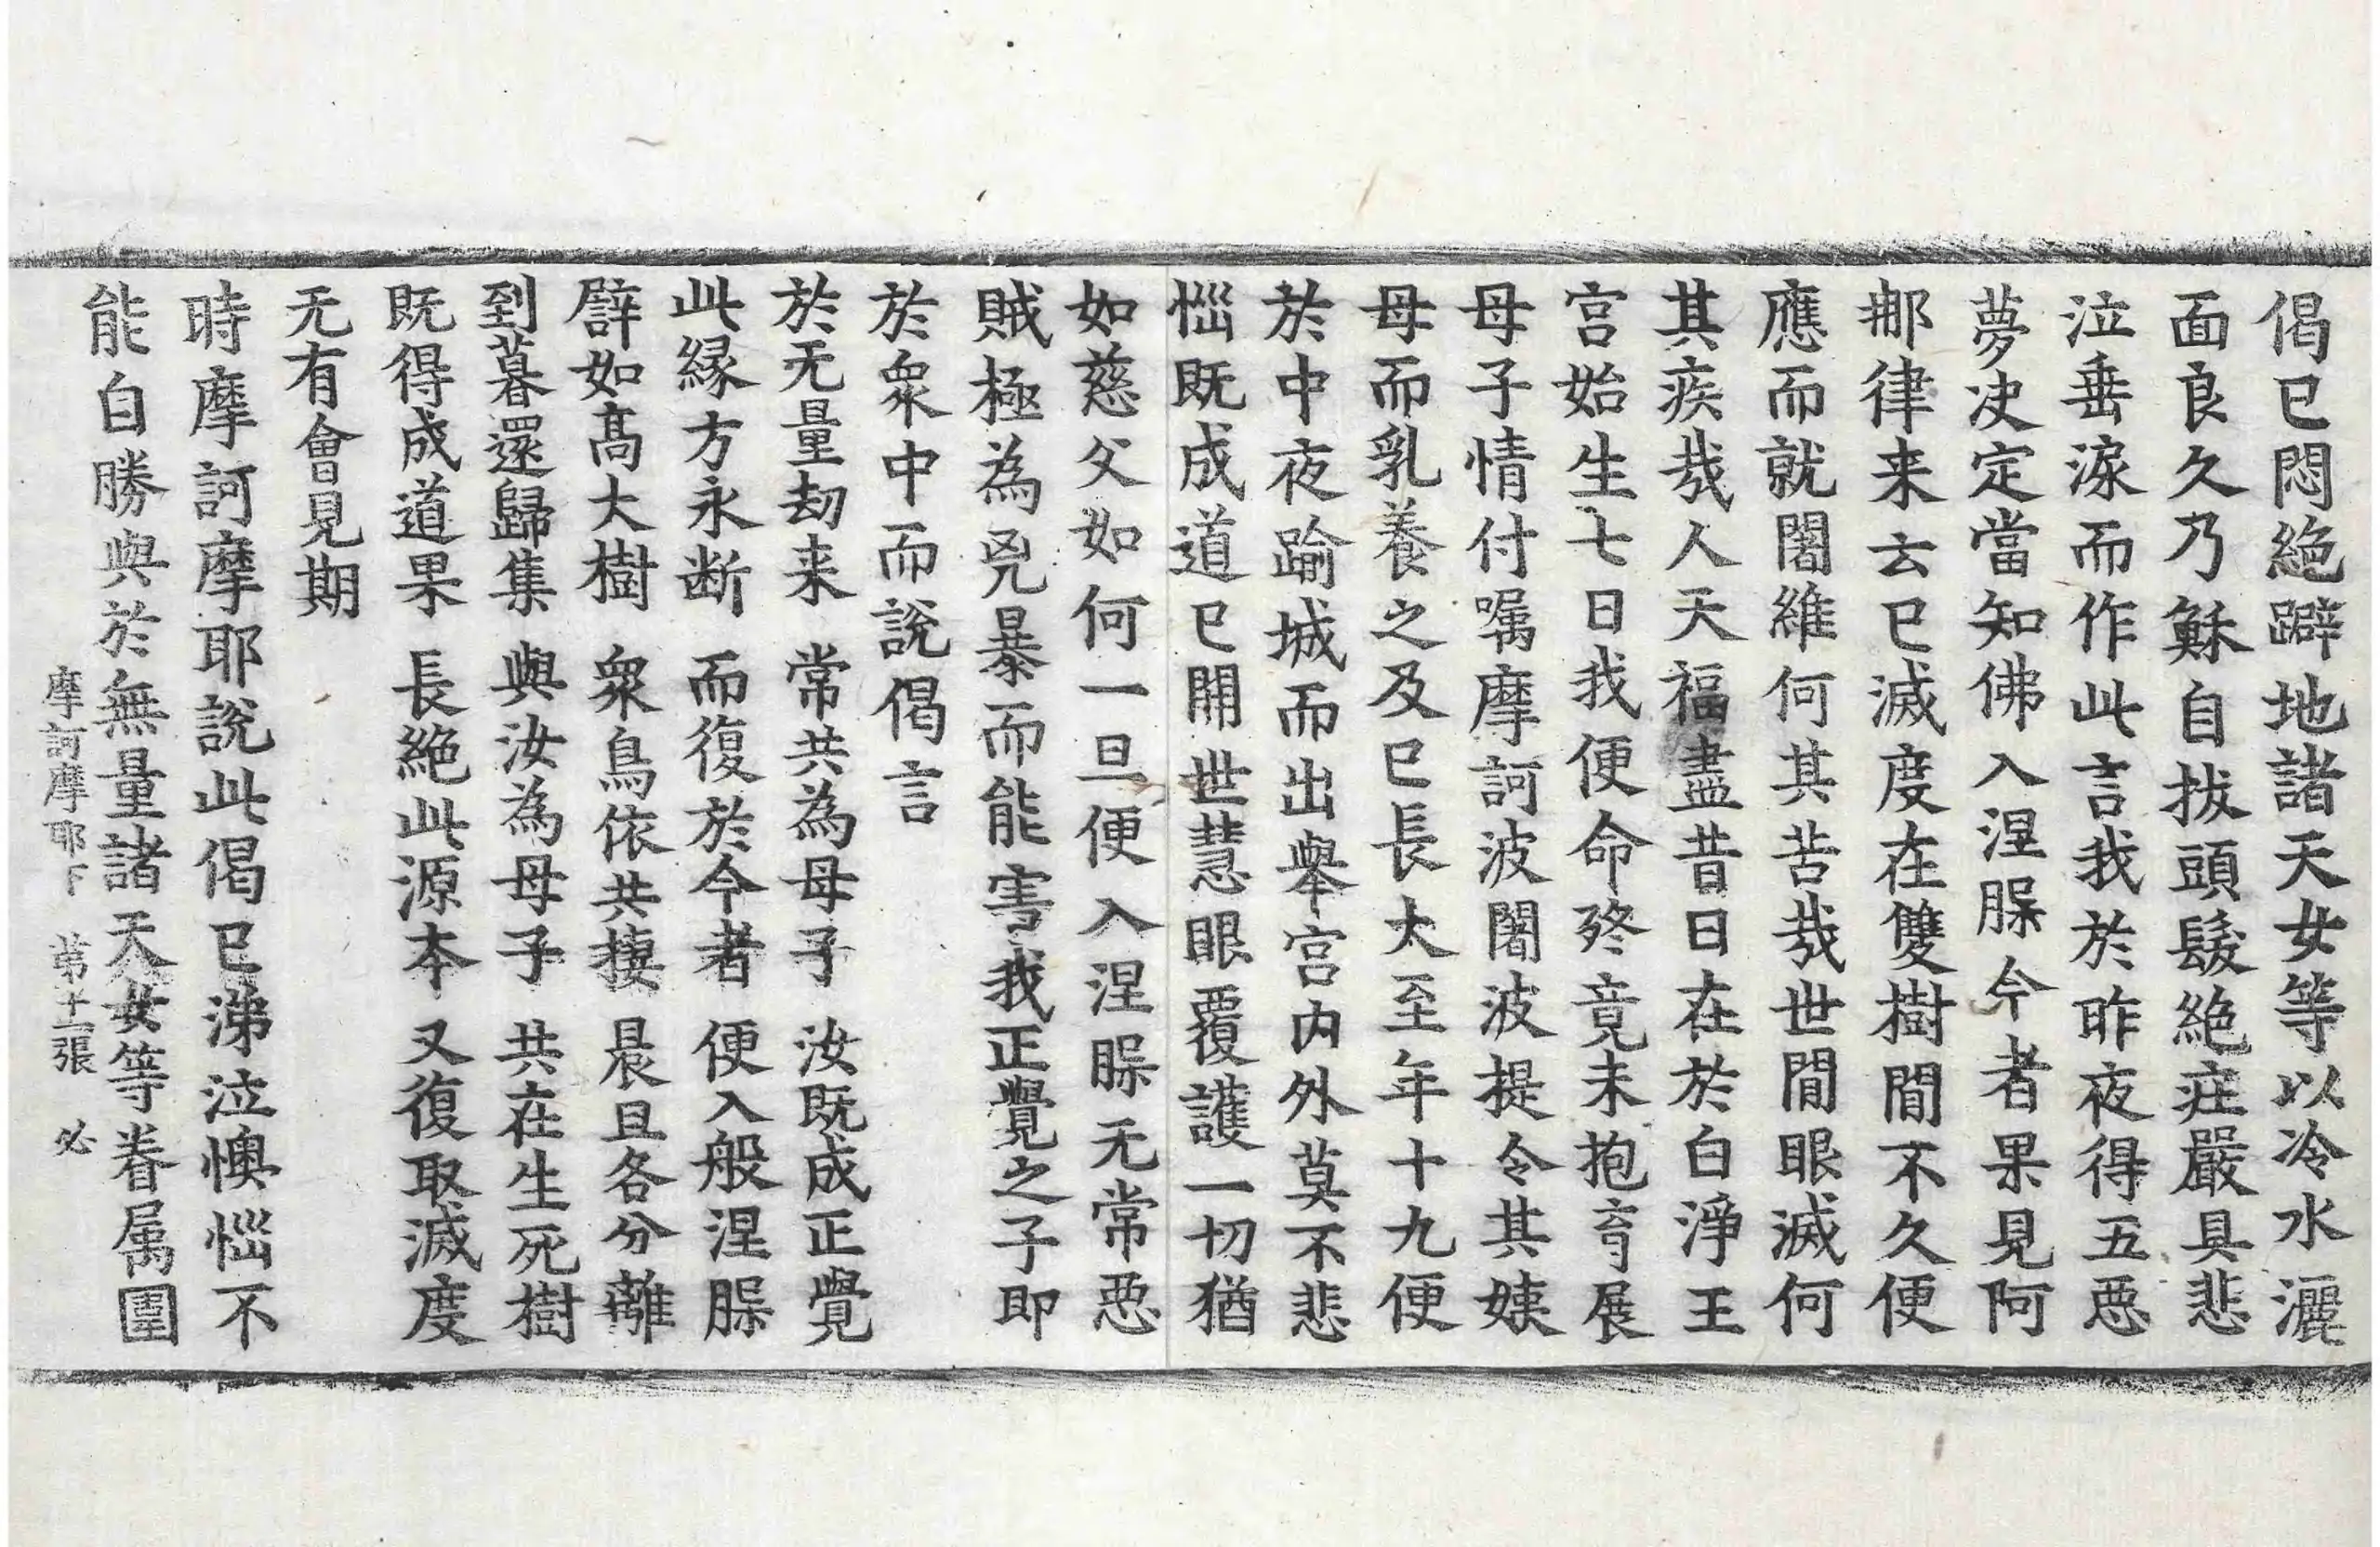 偈已悶絶躃地諸天女等以冷水灑
面良久乃穌自拔頭髮絶疰嚴具悲
泣垂淚而作此言我於昨夜得五惡
夢决定當知佛入涅槃今者果見阿
那律来云已滅度在雙樹間不久便
應而就闍維何其苦哉世間眼滅何
其疾哉人天福盡昔日在於白淨王
宮始生七日我便命終竟未抱育展
母子情付囑摩訶波闍波提令其姨
母而乳養之及已長大至年十九便
於中夜踰城而出舉宮内外莫不悲
惱既成道已開世慧眼覆護一切猶
如慈父如何一旦便入涅槃无常惡
賊極為兇暴而能害我正覺之子即
於衆中而說偈言
於无量劫来　常共為母子　汝既成正覺
此緣方永断　而復於今者　便入般涅槃
譬如高大樹　衆鳥依共棲　晨旦各分離
到暮還歸集　與汝為母子　共在生死樹
既得成道果　長絶此源本　又復取滅度
无有會見期
時摩訶摩耶說此偈已涕泣懊惱不
能自勝與於無量諸天女等眷属圍
摩訶摩耶下　第十二張　必